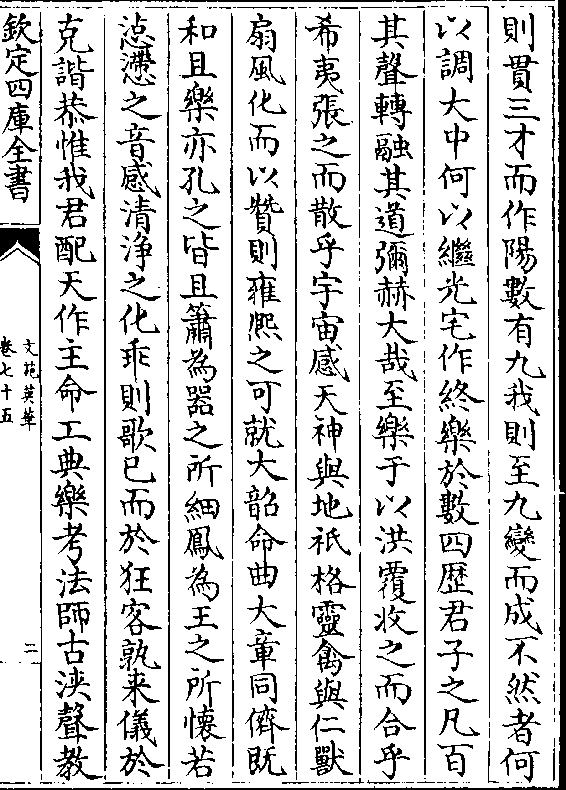 則貫三才而作陽數有九我則至九變而成不然者何
以調大中何以繼光宅作終樂於數四歴君子之凡百
其聲轉融其道彌赫大哉至樂于以洪覆收之而合乎
希夷張之而散乎宇宙感天神與地祇格靈禽與仁獸
扇風化而以贊則雍熈之可就大韶命曲大章同儕既
和且樂亦孔之皆且簫為器之所細鳳為王之所懷若
惉懘之音感清淨之化乖則歌已而於狂客孰来儀於
克諧恭惟我君配天作主命工典樂考法師古浹聲教
欽定四庫全書
文苑英華
卷七十五
二